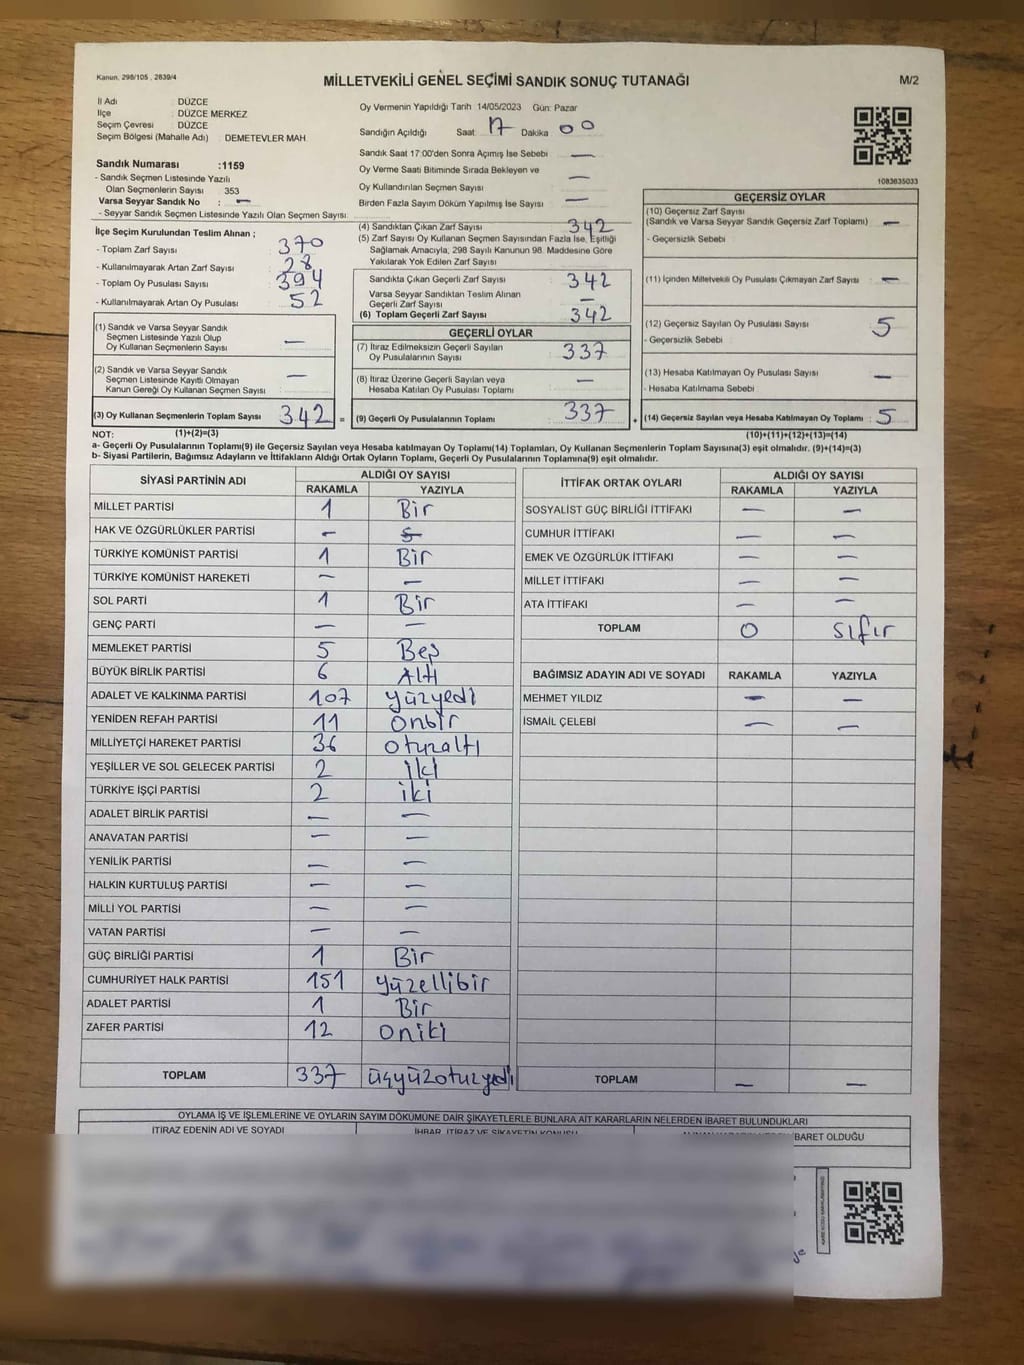 Kanun, 298/105 , 2839/4
MİLLETVEKİLİ GENEL SEÇİMİ SANDIK SONUÇ TUTANAĞI
M/2
İl Adı : DÜZCE
İlçe : DÜZCE MERKEZ
Seçim Çevresi : DÜZCE
Seçim Bölgesi (Mahalle Adı) : DEMETEVLER MAH
Sandık Numarası :1159
- Sandık Seçmen Listesinde Yazılı
Olan Seçmenlerin Sayısı : 353
Varsa Seyyar Sandık No : —
- Seyyar Sandık Seçmen Listesinde Yazılı Olan Seçmen Sayısı
Oy Vermenin Yapıldığı Tarih 14/05/2023 Gün: Pazar
Sandığın Açıldığı Saat: 17 Dakika 00
Sandık Saat 17:00'den Sonra Açımış İse Sebebi —
Oy Verme Saati Bitiminde Sırada Bekleyen ve
Oy Kullandırılan Seçmen Sayısı —
Birden Fazla Sayım Döküm Yapılmış İse Sayısı —
1083835033
İlçe Seçim Kurulundan Teslim Alınan ;
- Toplam Zarf Sayısı : 370
- Kullanılmayarak Artan Zarf Sayısı : 28
- Toplam Oy Pusulası Sayısı : 394
- Kullanılmayarak Artan Oy Pusulası : 52
(1) Sandık ve Varsa Seyyar Sandık
Seçmen Listesinde Yazılı Olup
Oy Kullanan Seçmenlerin Sayısı : —
(2) Sandık ve Varsa Seyyar Sandık
Seçmen Listesinde Kayıtlı Olmayan
Kanun Gereği Oy Kullanan Seçmen Sayısı : —
(3) Oy Kullanan Seçmenlerin Toplam Sayısı : 342 =
(4) Sandıktan Çıkan Zarf Sayısı : 342
(5) Zarf Sayısı Oy Kullanan Seçmen Sayısından Fazla İse, Eşitliği
Sağlamak Amacıyla; 298 Sayılı Kanunun 98. Maddesine Göre
Yakılarak Yok Edilen Zarf Sayısı
Sandıkta Çıkan Geçerli Zarf Sayısı : 342
Varsa Seyyar Sandıktan Teslim Alınan
Geçerli Zarf Sayısı : —
(6) Toplam Geçerli Zarf Sayısı : 342
GEÇERLİ OYLAR
(7) İtiraz Edilmeksizin Geçerli Sayılan
Oy Pusulalarının Sayısı : 337
(8) İtiraz Üzerine Geçerli Sayılan veya
Hesaba Katılan Oy Pusulası Toplamı : —
(9) Geçerli Oy Pusulalarının Toplamı : 337 +
GEÇERSİZ OYLAR
(10) Geçersiz Zarf Sayısı
(Sandık ve Varsa Seyyar Sandık Geçersiz Zarf Toplamı) : —
- Geçersizlik Sebebi :
(11) İçinden Milletvekili Oy Pusulası Çıkmayan Zarf Sayısı : —
(12) Geçersiz Sayılan Oy Pusulası Sayısı : 5
- Geçersizlik Sebebi :
(13) Hesaba Katılmayan Oy Pusulası Sayısı : —
- Hesaba Katılmama Sebebi :
(14) Geçersiz Sayılan veya Hesaba Katılmayan Oy Toplamı : 5
NOT: (1)+(2)=(3)
(10)+(11)+(12)+(13)=(14)
a- Geçerli Oy Pusulalarının Toplamı(9) ile Geçersiz Sayılan veya Hesaba katılmayan Oy Toplamı(14) Toplamları, Oy Kullanan Seçmenlerin Toplam Sayısına(3) eşit olmalıdır. (9)+(14)=(3)
b- Siyasi Partilerin, Bağımsız Adayların ve İttifakların Aldığı Ortak Oyların Toplamı, Geçerli Oy Pusulalarının Toplamına(9) eşit olmalıdır.
SİYASİ PARTİNİN ADI ALDIĞI OY SAYISI
RAKAMLA YAZIYLA
MİLLET PARTİSİ 1 Bir
HAK VE ÖZGÜRLÜKLER PARTİSİ —
TÜRKİYE KOMÜNİST PARTİSİ 1 Bir
TÜRKİYE KOMÜNİST HAREKETİ — —
SOL PARTİ 1 Bir
GENÇ PARTİ — —
MEMLEKET PARTİSİ 5 Beş
BÜYÜK BİRLİK PARTİSİ 6 Altı
ADALET VE KALKINMA PARTİSİ 107 yüzyedi
YENİDEN REFAH PARTİSİ 11 Onbir
MİLLİYETÇİ HAREKET PARTİSİ 36 otuzaltı
YEŞİLLER VE SOL GELECEK PARTİSİ 2 iki
TÜRKİYE İŞÇİ PARTİSİ 2 iki
ADALET BİRLİK PARTİSİ — —
ANAVATAN PARTİSİ — —
YENİLİK PARTİSİ — —
HALKIN KURTULUŞ PARTİSİ — —
MİLLİ YOL PARTİSİ — —
VATAN PARTİSİ — —
GÜÇ BİRLİĞİ PARTİSİ 1 Bir
CUMHURİYET HALK PARTİSİ 151 yüzellibir
ADALET PARTİSİ 1 Bir
ZAFER PARTİSİ 12 Oniki
TOPLAM 337 üçyüzotuzyedi
İTTİFAK ORTAK OYLARI ALDIĞI OY SAYISI
RAKAMLA YAZIYLA
SOSYALİST GÜÇ BİRLİĞİ İTTİFAKI — —
CUMHUR İTTİFAKI — —
EMEK VE ÖZGÜRLÜK İTTİFAKI — —
MİLLET İTTİFAKI — —
ATA İTTİFAKI — —
TOPLAM 0 sıfır
BAĞIMSIZ ADAYIN ADI VE SOYADI RAKAMLA YAZIYLA
MEHMET YILDIZ — —
İSMAİL ÇELEBİ — —
TOPLAM — —
OYLAMA İŞ VE İŞLEMLERİNE VE OYLARIN SAYIM DÖKÜMÜNE DAİR ŞİKAYETLERLE BUNLARA AİT KARARLARIN NELERDEN İBARET BULUNDUKLARI
İTİRAZ EDENİN ADI VE SOYADI
İHBAR, İTİRAZ VE ŞİKAYETİN KONUSU
İBARET OLDUĞU